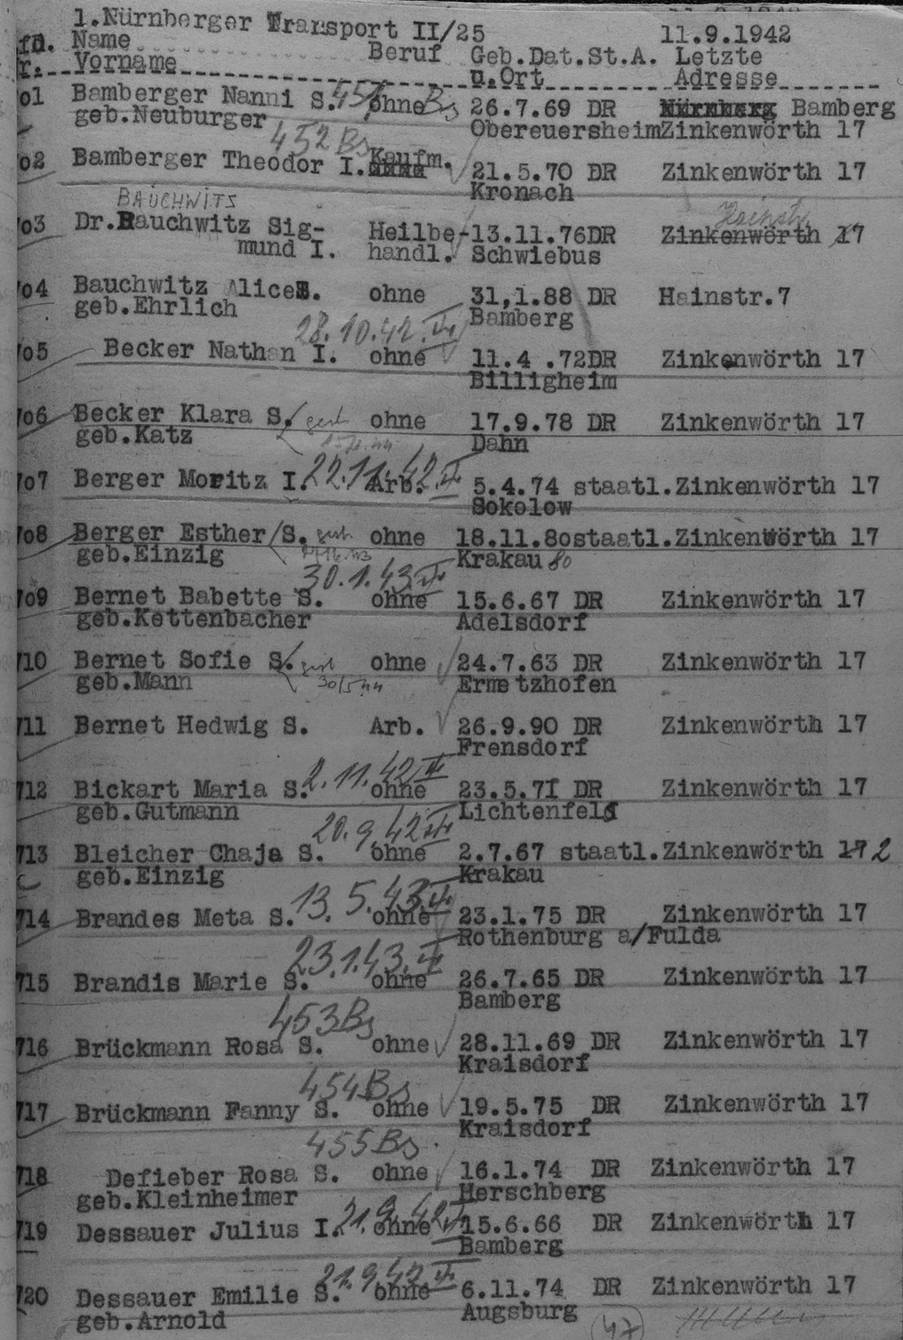 1.Nürnberger Transport II/25 11.9.1942
fd. Name Beruf Geb.Dat.St.A. Letzte
r. Vorname u.Ort Adresse
701 Bamberger Nanni S. 451 Bs ohne 26.7.69 DR Nürnberg Bamberg
geb.Neuburger Obereuersheim Zinkenwörth 17
452 Bs
702 Bamberger Theodor I. Kaufm. 21.5.70 DR Zinkenwörth 17
Kronach
BAUCHWITS Hainstr
703 Dr.Bauchwitz Sig- Heilbe- 13.11.76DR Zinkenwörth 17
mund I. handl. Schwiebus
704 Bauchwitz Alice S. ohne 31,1.88 DR Hainstr.7
geb.Ehrlich Bamberg
28.10.42.
705 Becker Nathan I. ohne 11.4 .72DR Zinkenwörth 17
Billigheim
706 Becker Klara S. gest ohne 17.9.78 DR Zinkenwörth 17
geb.Katz Dahn
707 Berger Moritz I. 22.11.42. Arb. 5.4.74 staatl.Zinkenwörth 17
Sokolow
708 Berger Esther/S. gest ohne 18.11.80staatl.Zinkenwörth 17
geb.Einzig Krakau 80
30.1.43
709 Bernet Babette S. ohne 15.6.67 DR Zinkenwörth 17
geb.Kettenbacher Adelsdorf
710 Bernet Sofie S. gest ohne 24.7.63 DR Zinkenwörth 17
geb.Mann 30/5 44 Ermetzhofen
711 Bernet Hedwig S. Arb. 26.9.90 DR Zinkenwörth 17
Frensdorf
2.11.42
712 Bickart Maria S. ohne 23.5.71 DR Zinkenwörth 17
geb.Gutmann Lichtenfels
20.9.42
713 Bleicher Chaja S. ohne 2.7.67 staatl.Zinkenwörth 17 2
geb.Einzig Krakau
13.5.43.
714 Brandes Meta S. ohne 23.1.75 DR Zinkenwörth 17
Rothenburg a/Fulda
23.1.43.
715 Brandis Marie S. ohne 26.7.65 DR Zinkenwörth 17
Bamberg
453 Bs
716 Brückmann Rosa S. ohne 28.11.69 DR Zinkenwörth 17
Kraisdorf
454 Bs
717 Brückmann Fanny S. ohne 19.5.75 DR Zinkenwörth 17
Kraisdorf
455 Bs.
718 Defieber Rosa S. ohne 16.1.74 DR Zinkenwörth 17
geb.Kleinheimer Herschberg
719 Dessauer Julius I. 21.9.42 ohne 15.6.66 DR Zinkenwörth 17
Bamberg
21.9.42
720 Dessauer Emilie S. ohne 6.11.74 DR Zinkenwörth 17
geb.Arnold Augsburg 47